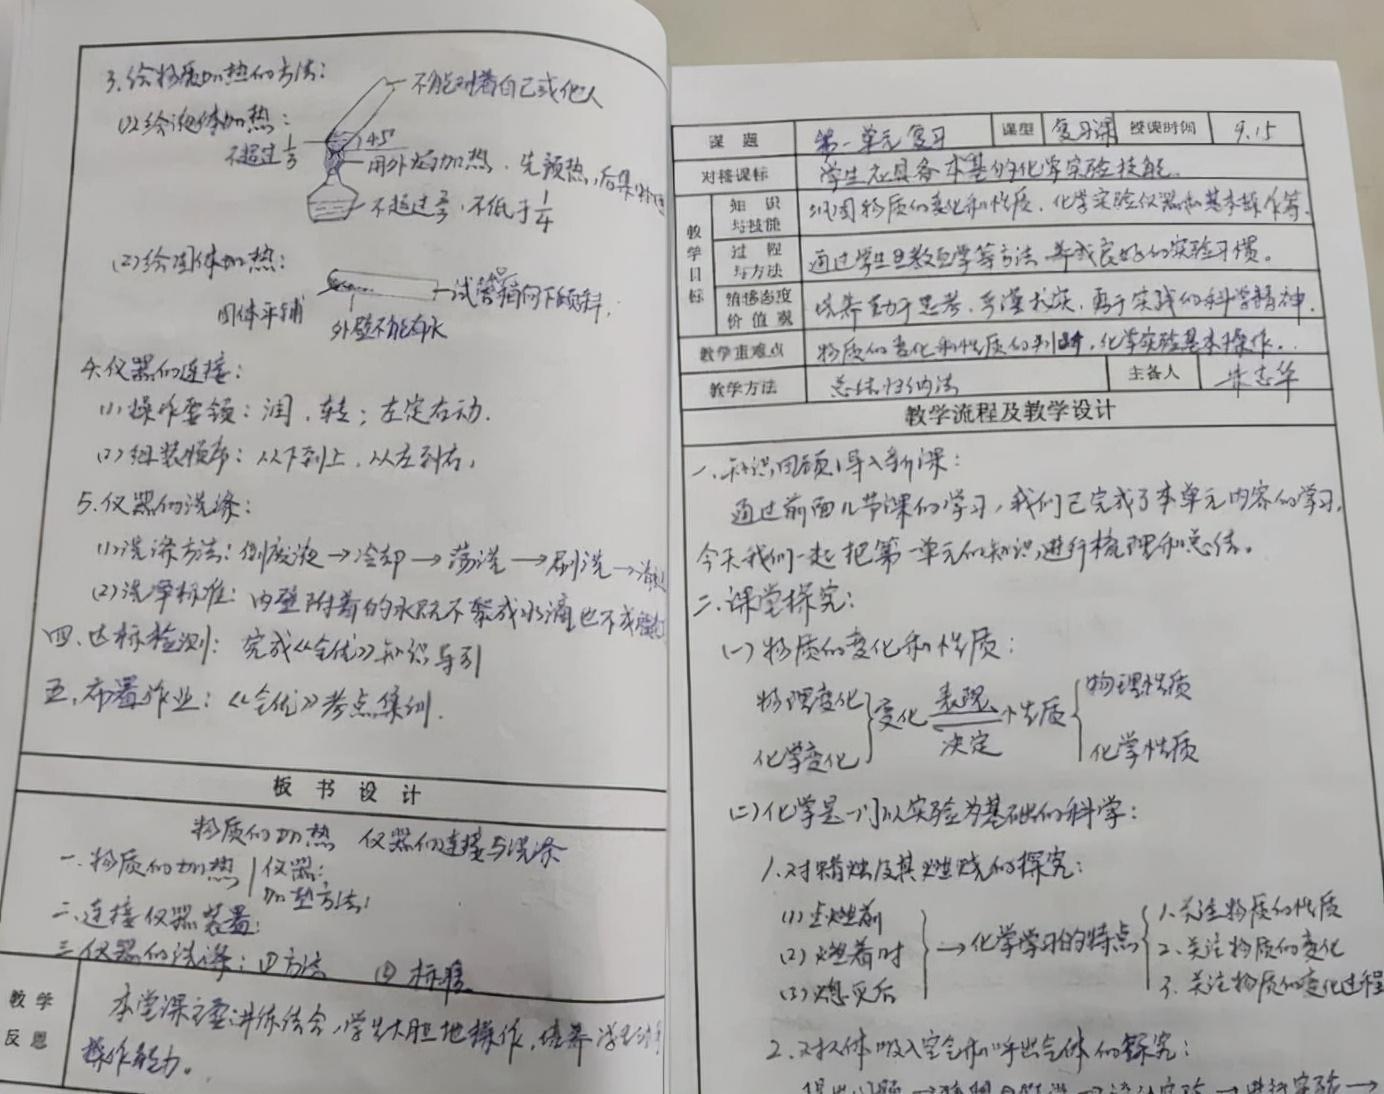 3.给物质加热的方法:
(1)给液体加热:
不能对着自己或他人
不超过1/3
45°
用外焰加热.先预热,后集中
不超过2/3.不低于1/4
(2)给固体加热:
固体平铺
试管口稍向下倾斜.
外壁不能有水
4.仪器的连接:
(1)操作要领:润.转;左定右动.
(2)组装顺序:从下到上.从左到右,
5.仪器的洗涤:
(1)洗涤方法:倒废液→冷却→荡洗→刷洗→
(2)洗净标准:内壁附着的水既不聚成水滴也不成
四.达标检测:完成《全优》知识导引
五.布置作业:《全优》考点集训.
板 书 设 计
物质的加热 仪器的连接与洗涤
一.物质的加热 仪器:
加热方法:
二.连接仪器装置:
三.仪器的洗涤:①方法 ②标准
教学反思
本堂课主要讲练结合,学生大胆地操作,培养学生的
操作能力。
课 题 第一单元复习 课型 复习课 授课时间 9.15
对接课标 学生应具备本基的化学实验技能.
教学目标
知 识与技能 巩固物质的变化和性质.化学实验仪器和基本操作等.
过 程与方法 通过学生自教自学等方法 养成良好的实验习惯。
情感态度价值观 培养勤于思考.严谨求实.勇于实践的科学精神.
教学重难点 物质的变化和性质的判断.化学实验基本操作.
教学方法 总结归纳法 主备人 朱志华
教学流程及教学设计
一.知识回顾,导入新课:
通过前面几节课的学习,我们已完成了本单元内容的学习,
今天我们一起把第一单元的知识进行梳理和总结。
二.课堂探究:
(一)物质的变化和性质:
物理变化
化学变化
变化 表现 决定 性质
物理性质
化学性质
(二)化学是一门以实验为基础的科学:
1.对蜡烛及其燃烧的探究:
(1)点燃前
(2)燃着时
(3)熄灭后
→化学学习的特点
1.关注物质的性质
2.关注物质的变化
3.关注物质的变化过程
2.对人体吸入空气和呼出气体的探究:
提出问题→→设计实验→进行实验→